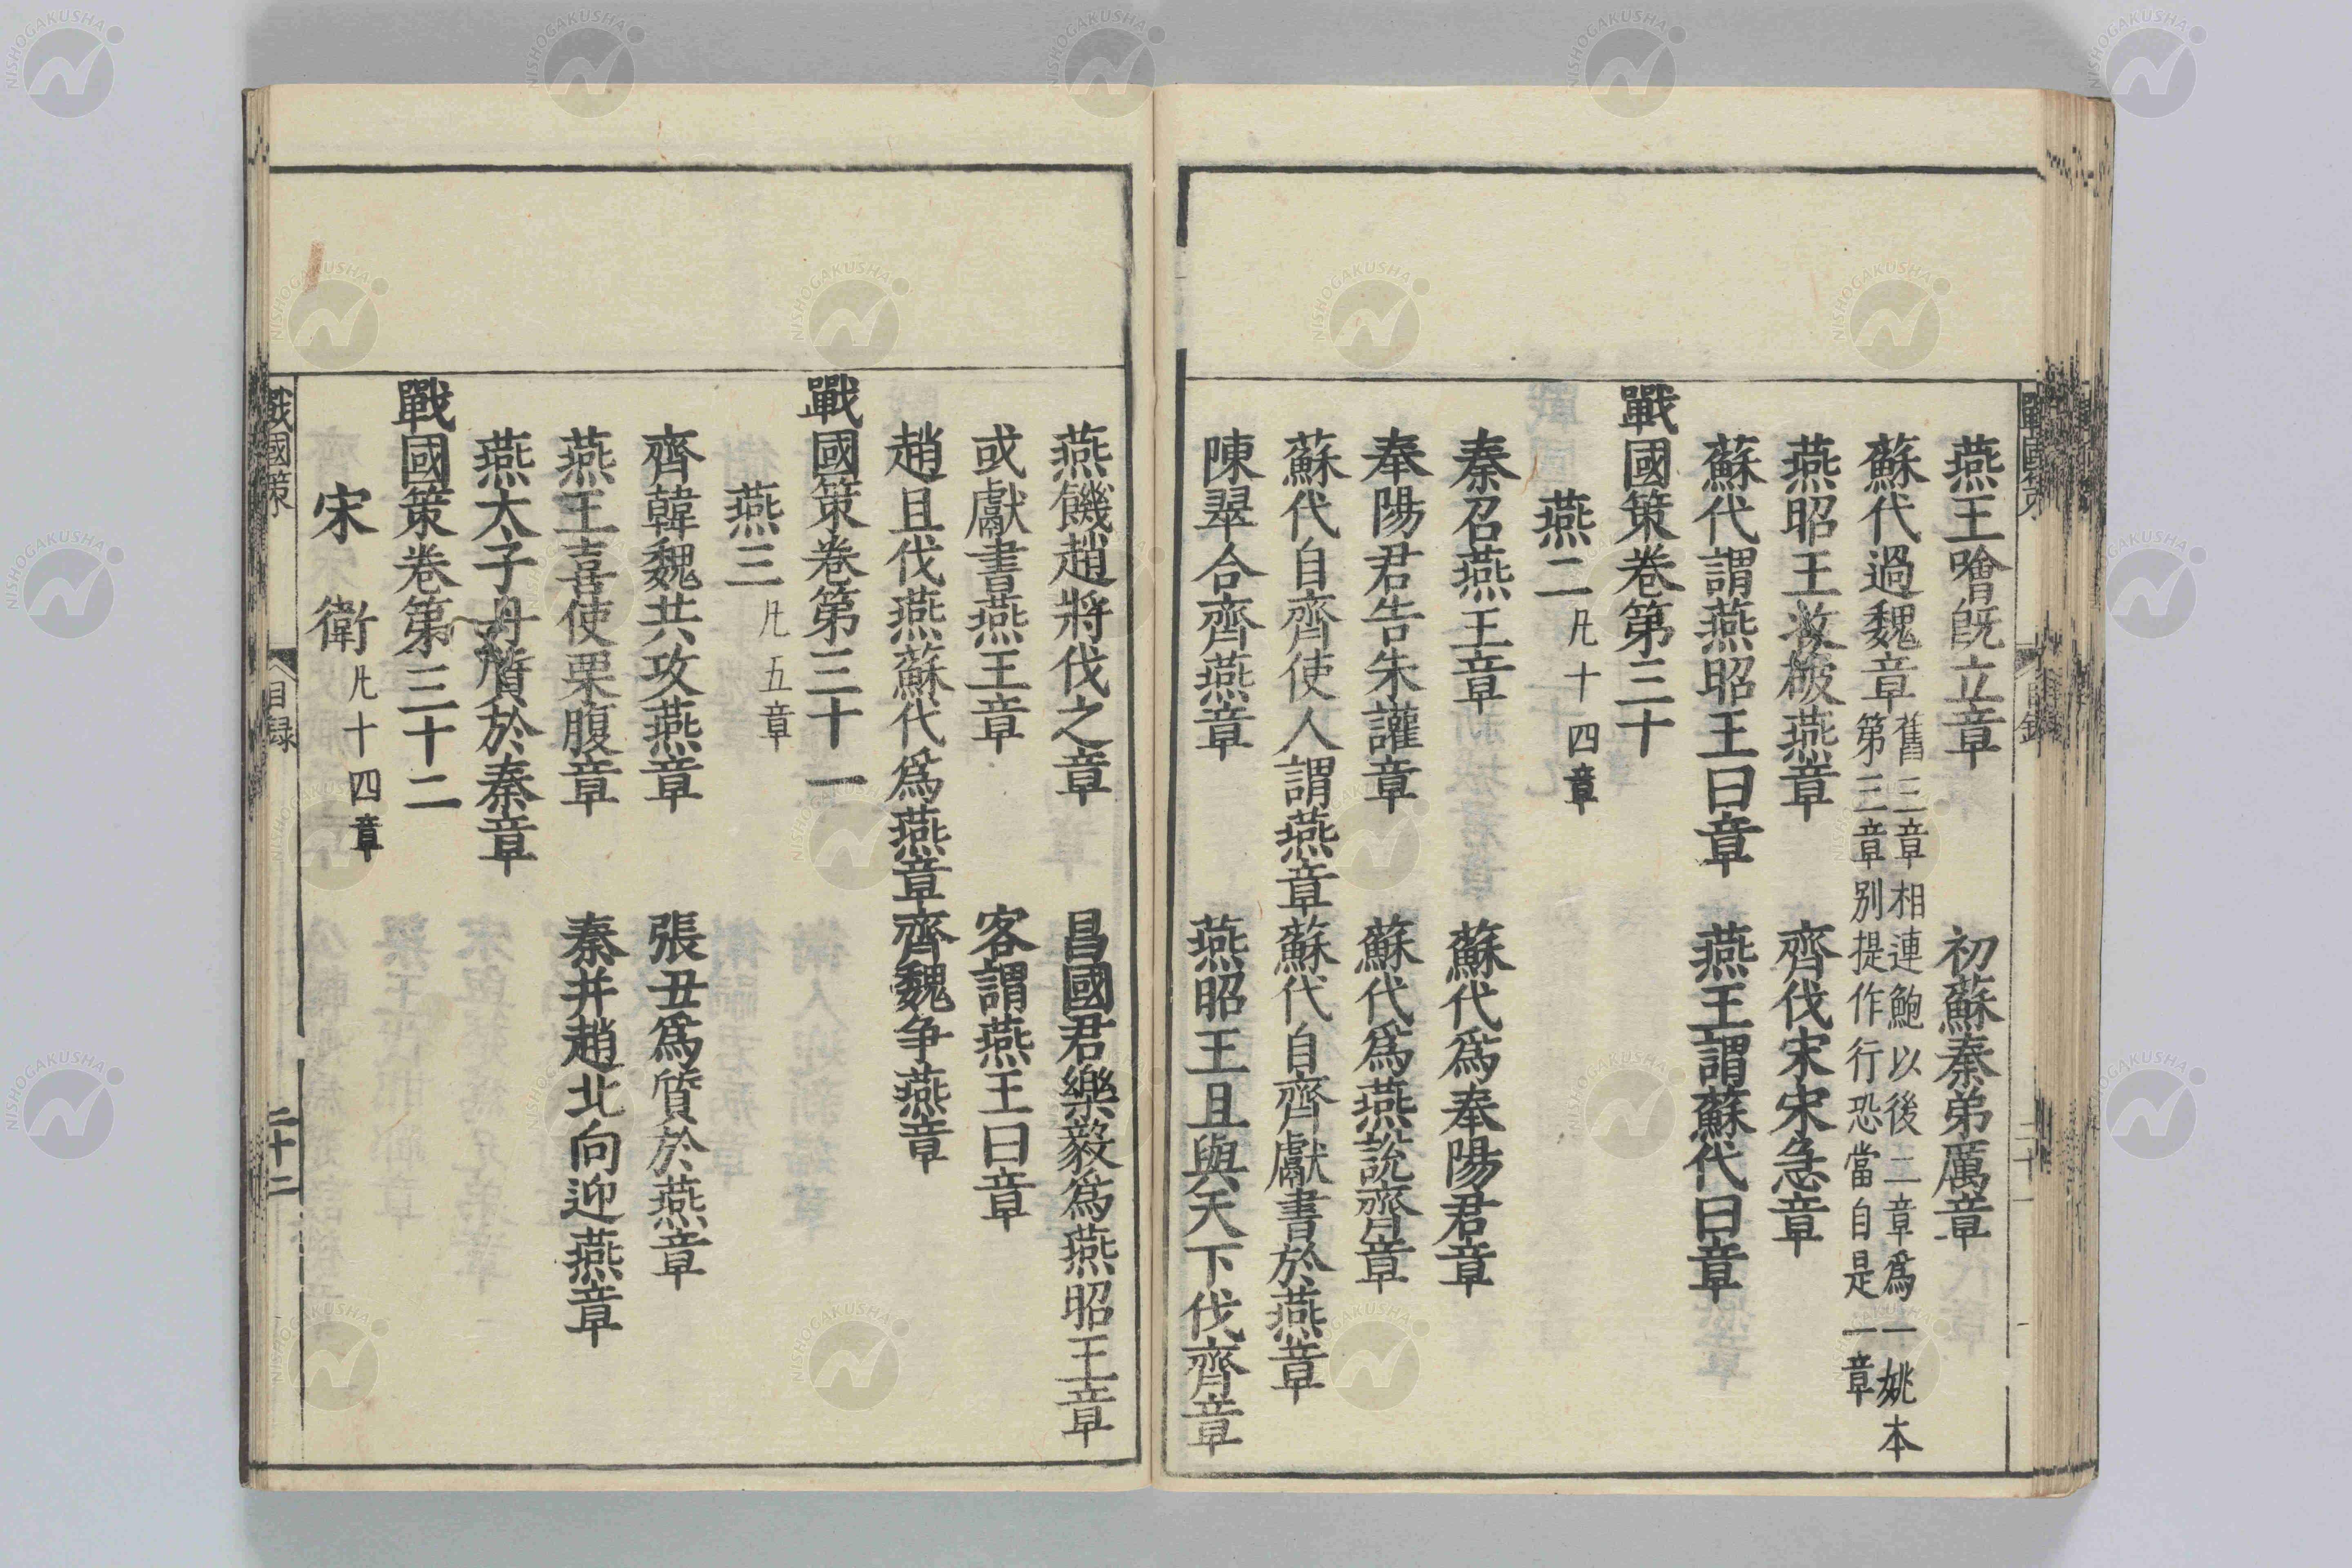 燕王噲旣立章　初蘇秦弟厲章
蘇代過魏章 舊三章相連鮑以後二章爲一姚本
第三章別提作行恐當自是一章
燕昭王收破燕章　齊伐宋宋急章
蘇代謂燕昭王曰章　燕王謂蘇代曰章
戰國策卷第三十
燕二 凡十四章
秦召燕王章　蘇代爲奉陽君章
奉陽君告朱讙章　蘇代爲燕說齊章
蘇代自齊使人謂燕章　蘇代自齊獻書於燕章
陳翠合齊燕章　燕昭王且與天下伐齊章
燕饑趙將伐之章　昌國君樂毅爲燕昭王章
或獻書燕王章　客謂燕王曰章
趙且伐燕蘇代爲燕章　齊魏爭燕章
戰國策卷第三十一
燕三 凡五章
齊韓魏共攻燕章　張丑爲質於燕章
燕王喜使栗腹章　秦幷趙北向迎燕章
燕太子丹質於秦章
戰國策卷第三十二
宋　衛 凡十四章
戰國策　目録　二十二
NISHOGAKUSHA